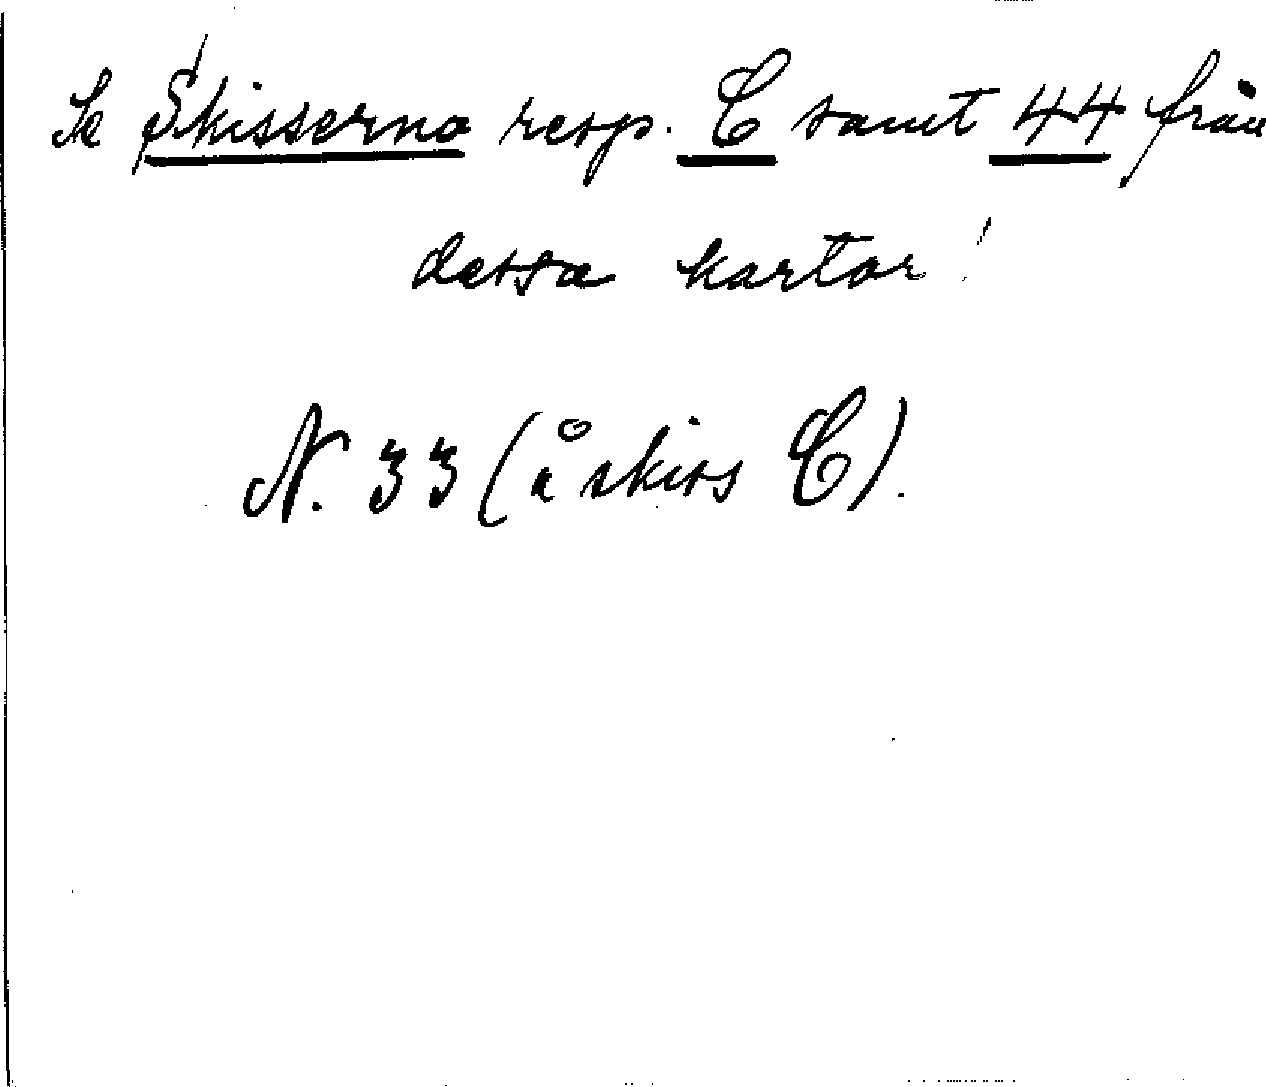 Se Skisserna resp. C samt 44 från
dessa kartor!
N. 33 (å skiss C).